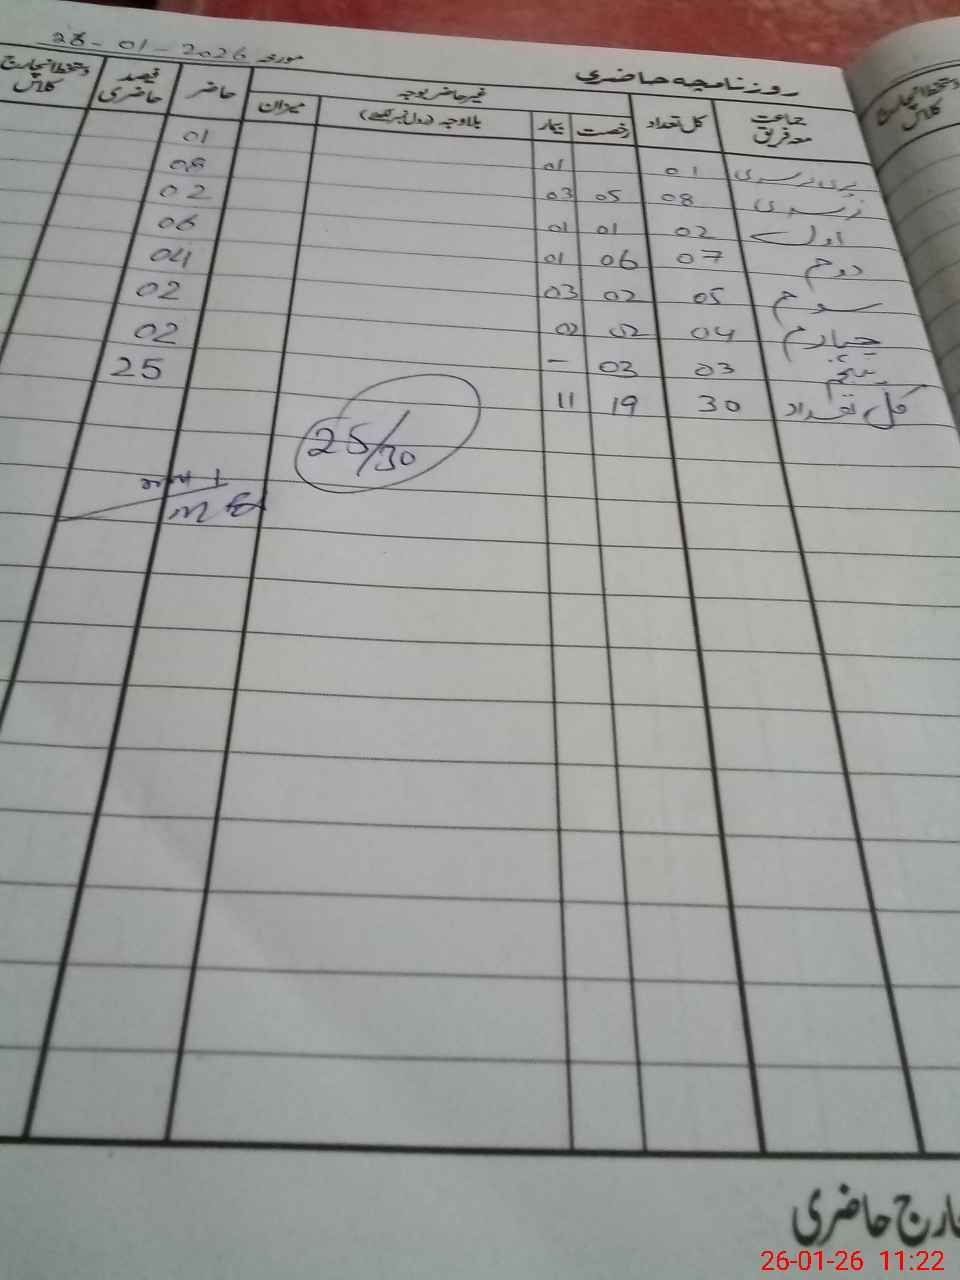 مورخہ 28-01-2026
روزنامچہ حاضری
جماعت معہ فریق کل تعداد غیر حاضر بوجہ حاضر فیصد حاضری دستخط انچارج کلاس
رخصت بیمار بلاوجہ (رول نمبر لکھیں) میزان
پری نرسری 01 01 01
نرسری 08 05 03 08
اول 02 01 01 02
دوم 07 06 01 06
سوم 05 02 03 04
چہارم 04 02 02 02
پنجم 03 03 – 02
کل تعداد 30 19 11 25
25/30
دستخط انچارج کلاس
ارج حاضری
26-01-26 11:22